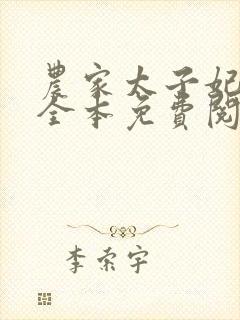 農家太子妃
全本免費閱
李索宇